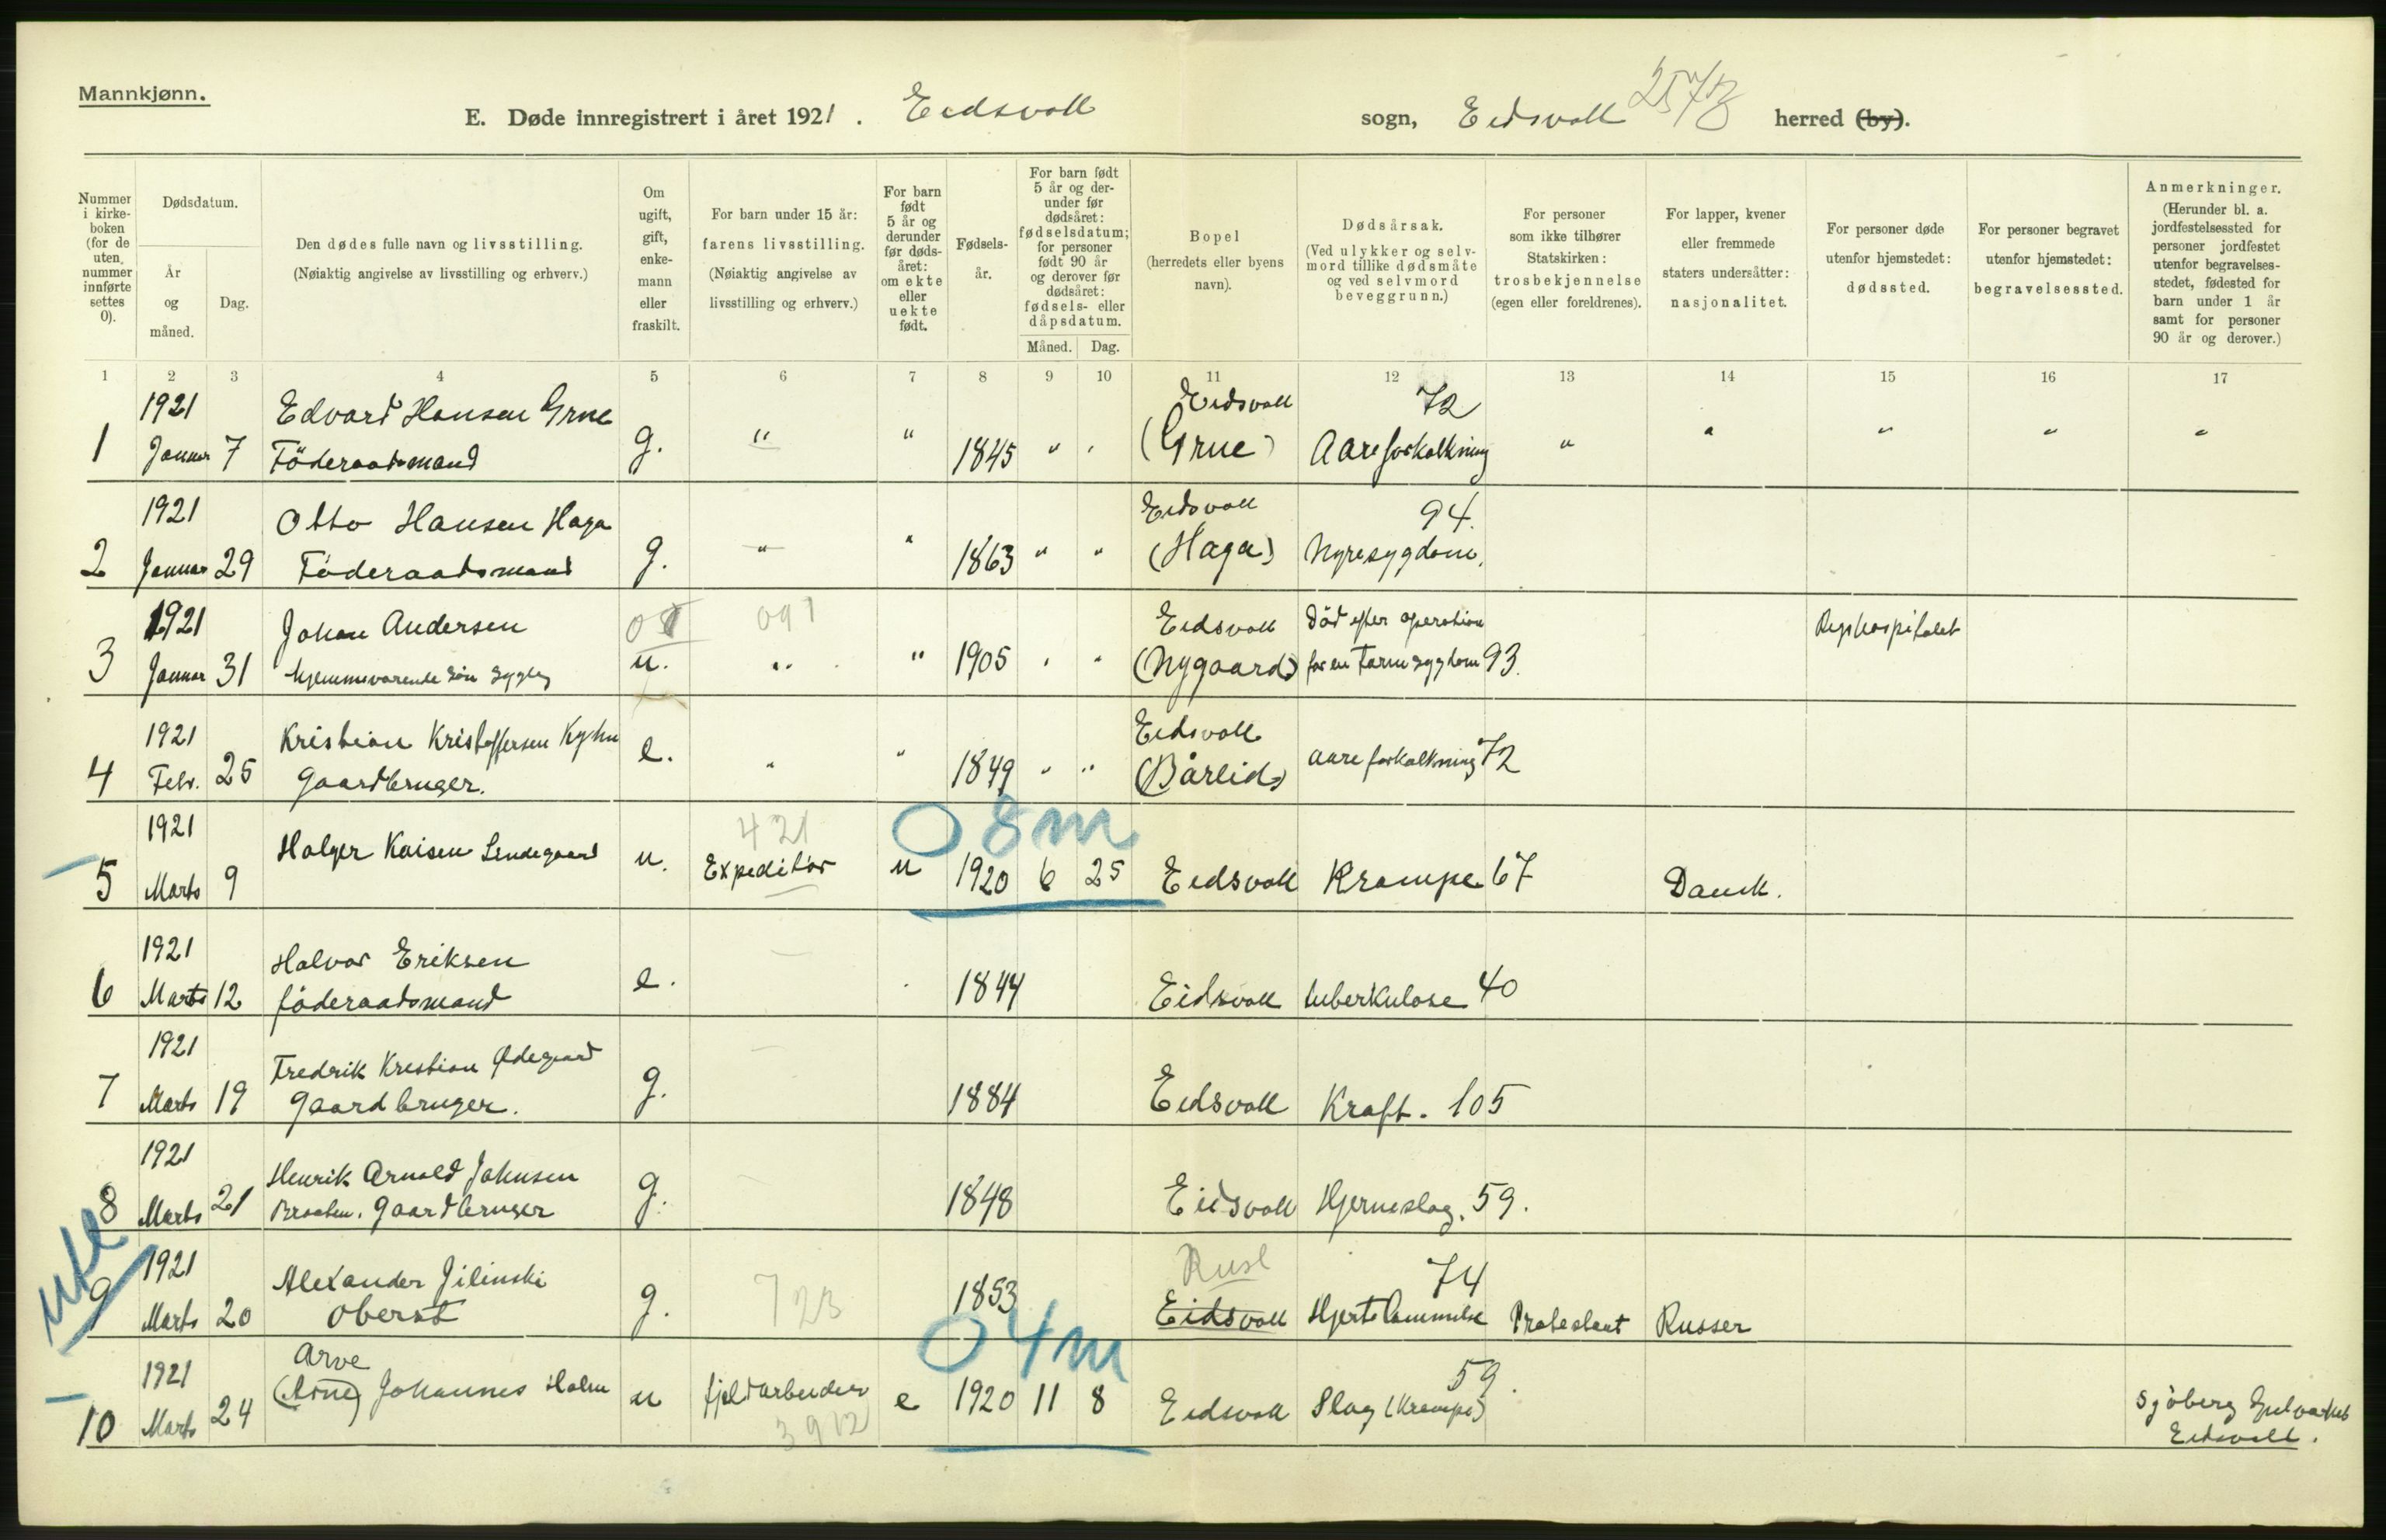 Mannkjønn.
E. Døde innregistrert i året 1921. Eidsvoll sogn, Eidsvoll herred (by).
Nummer i kirkeboken (for de uten nummer innførte settes 0).
Dødsdatum.
År og måned.
Dag.
Den dødes fulle navn og livsstilling.
(Nøiaktig angivelse av livsstilling og erhverv.)
Om ugift, gift, enkemann eller fraskilt.
For barn under 15 år: farens livsstilling.
(Nøiaktig angivelse av livsstilling og erhverv.)
For barn født 5 år og derunder før dødsåret: om ekte eller uekte født.
Fødselsår.
For barn født 5 år og derunder før dødsåret: fødselsdatum; for personer født 90 år og derover før dødsåret: fødsels- eller dåpsdatum.
Måned. Dag.
Bopel
(herredets eller byens navn).
Dødsårsak.
(Ved ulykker og selvmord tillike dødsmåte og ved selvmord beveggrunn.)
For personer som ikke tilhører Statskirken: trosbekjennelse (egen eller foreldrenes).
For lapper, kvener eller fremmede staters undersåtter: nasjonalitet.
For personer døde utenfor hjemstedet: dødssted.
For personer begravet utenfor hjemstedet: begravelsessted.
Anmerkninger.
(Herunder bl. a. jordfestelsessted for personer jordfestet utenfor begravelsesstedet, fødested for barn under 1 år samt for personer 90 år og derover.)
1 2 3 4 5 6 7 8 9 10 11 12 13 14 15 16 17
1921 Edvard Hansen Grue Eidsvoll 72
1 Januar 7 Föderaadsmand g. " " 1845 " " (Grue) Aareforkalkning " " " " "
1921 Otto Hansen Haga Eidsvoll 94.
2 Januar 29 Föderaadsmand g. " " 1863 " " (Haga) Nyresygdom.
1921 Johan Andersen 091 Eidsvoll Död efter operation Rigshospitalet
3 Januar 31 hjemmeværende sön u. " " 1905 " " (Nygaard) for en Tarmsygdom 93.
1921 Kristian Kristoffersen Eidsvoll
4 Febr. 25 Gaardbruger. e. " " 1849 " " (Bårlid) Aareforkalkning 72
1921 421 08m
Holger Kaisen Lindegaard
5 Marts 9 u. Expeditör u 1920 6 25 Eidsvoll Krampe 67 Dansk.
1921 Halvor Eriksen
6 Marts 12 föderaadsmand e. 1844 Eidsvoll tuberkulose 40
1921 Fredrik Kristian Ødegaard
7 Marts 19 Gaardbruger. g. 1884 Eidsvoll Kræft. 105
1921 Henrik Arnold Johnsen
8 Marts 21 Braaten. Gaardbruger g. 1848 Eidsvoll Hjerneslag. 59.
1921 Alexander Jilinski Rusl 74
9 Marts 20 Oberst g. 723 1853 Eidsvoll Hjertelammelse Protestant Russer
04m
1921 Arve 59.
10 Marts 24 (Arne) Johannes Holm u fjeldarbeider e 1920 11 8 Eidsvoll Slag (Krampe) Sjöberg Gulverket
3912 Eidsvoll.